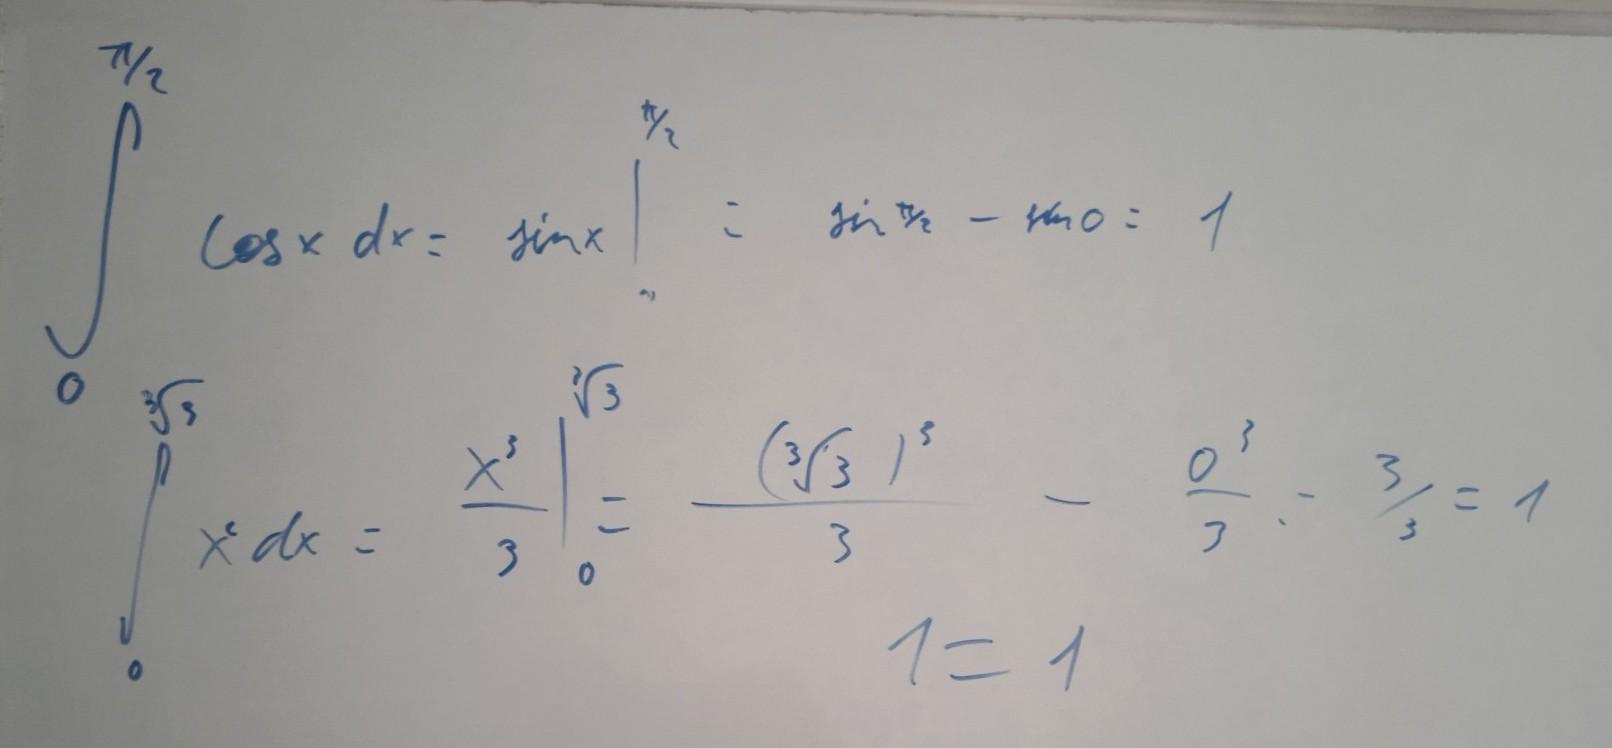 ∫₀^(π/2) cos x dx = sin x |₀^(π/2) = sin π/2 − sin 0 = 1
∫₀^(∛3) x² dx = x³/3 |₀^(∛3) = (∛3)³/3 − 0³/3 = 3/3 = 1
1 = 1